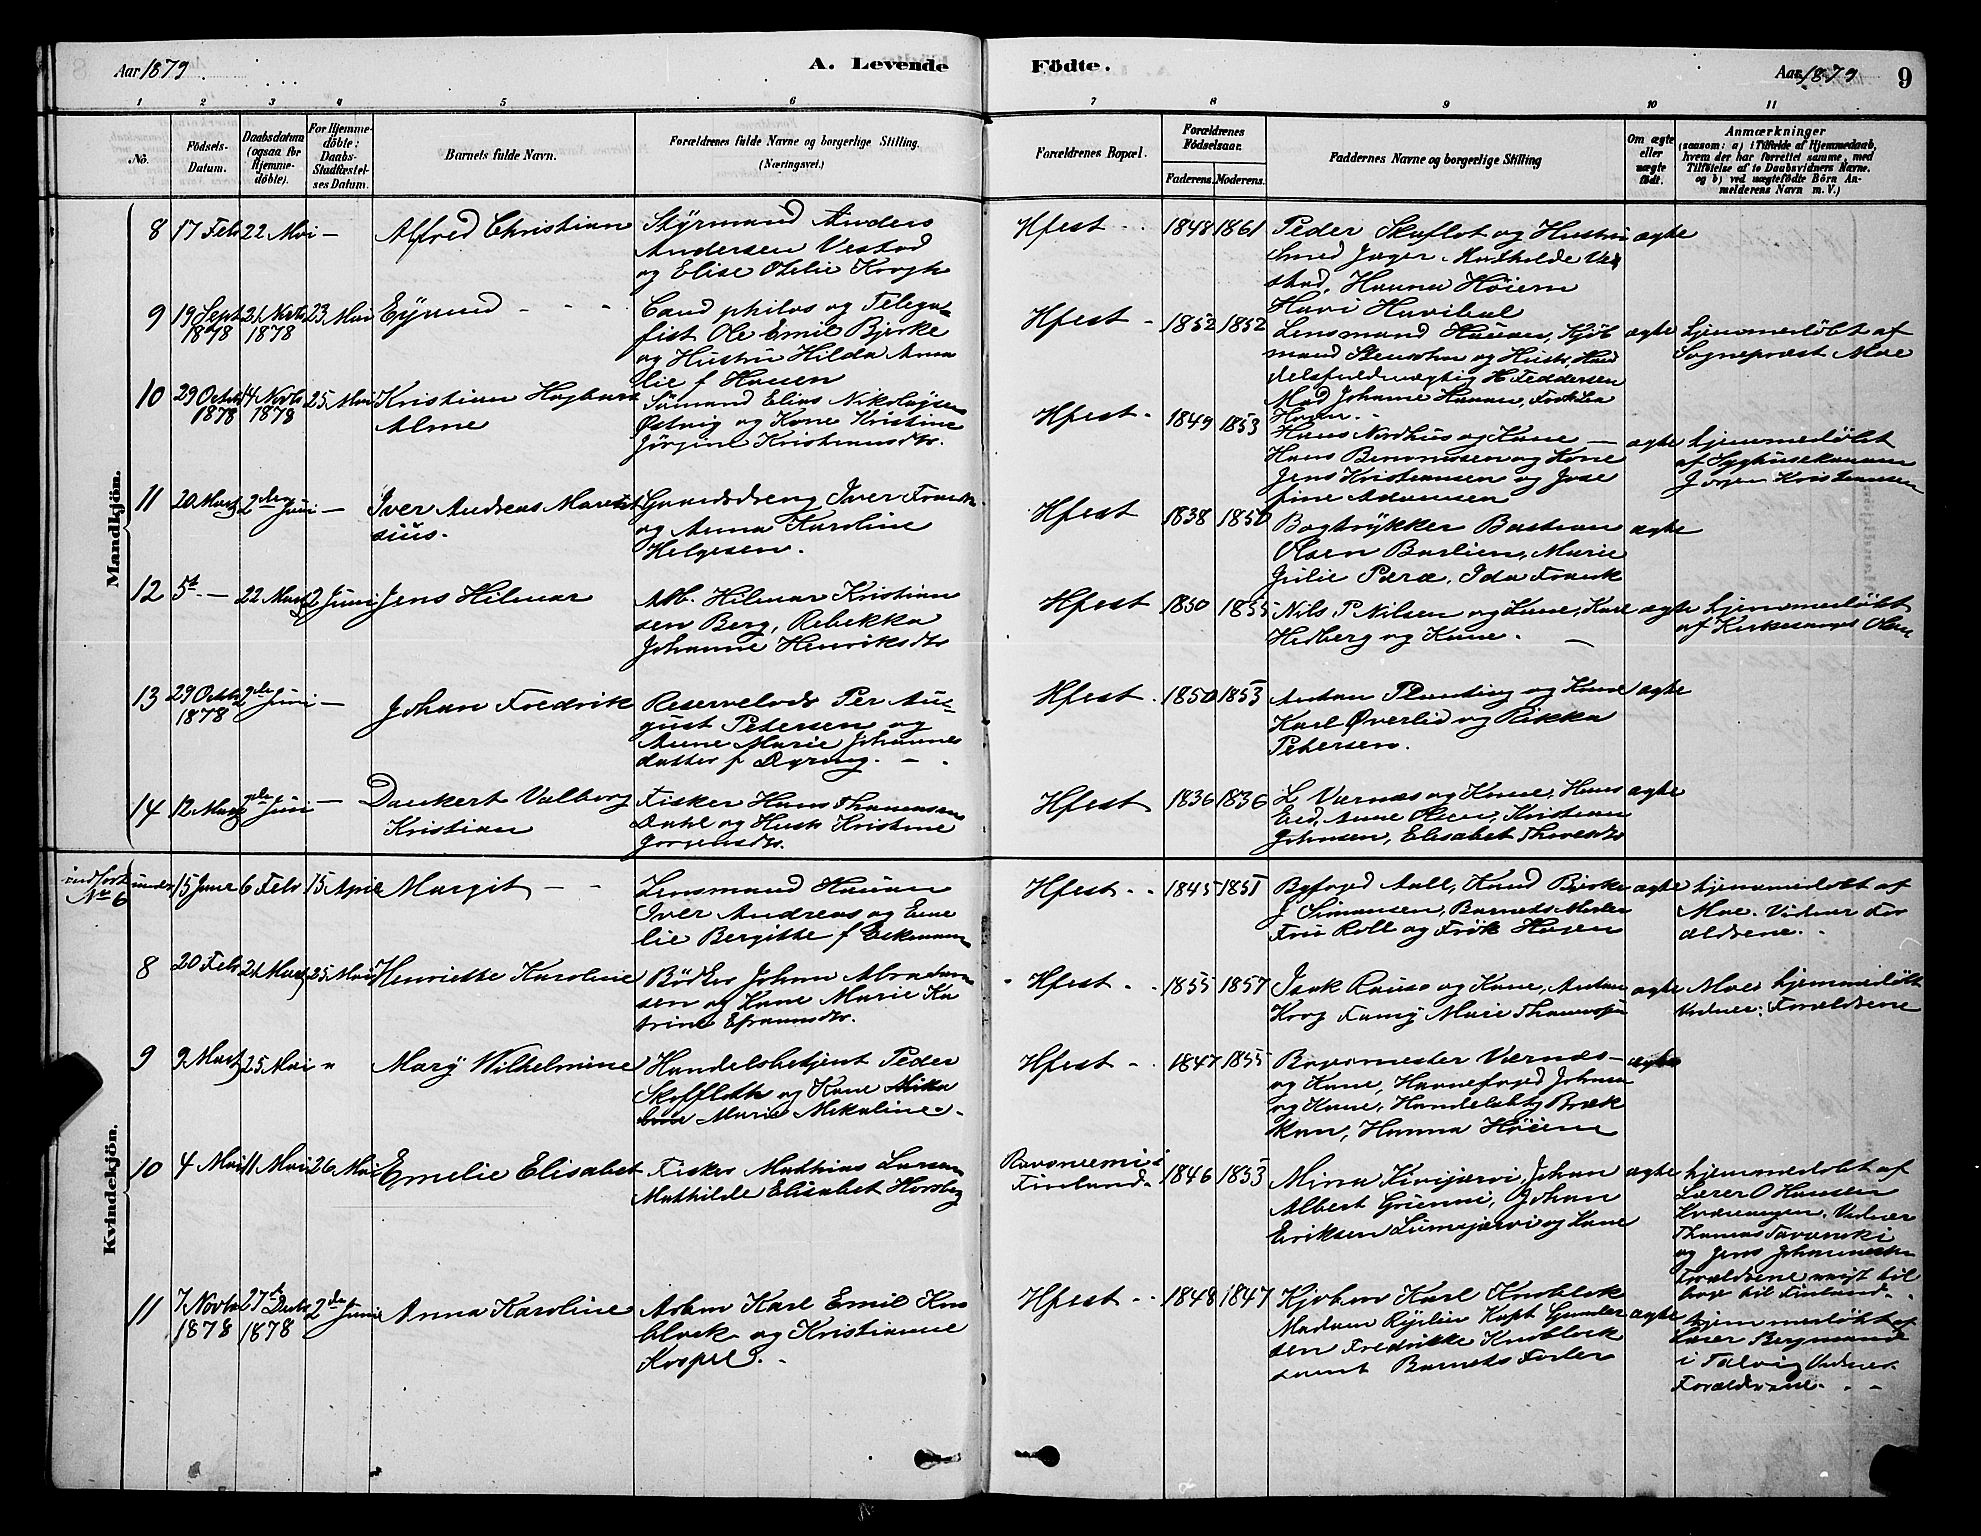 Aar 1879
A. Levende
Födte.
Aar 1879
9
1 2 3 4 5 6 7 8 9 10 11
No.
Födsels-
Datum.
Daabsdatum
(ogsaa for
Hjemme-
döbte).
For Hjemme-
döbte:
Daabs-
Stadfæstel-
ses Datum.
Barnets fulde Navn.
Forældrenes fulde Navne og borgerlige Stilling.
(Næringsvei.)
Forældrenes Bopæl.
Forældrenes
Födselsaar.
Faderens. Moderens.
Faddernes Navne og borgerlige Stilling
Om ægte
eller
uægte
födt.
Anmærkninger
(saasom: a) i Tilfælde af Hjemmedaab,
hvem der har forrettet samme, med
Tilföielse af to Daabsvidners Navne.
og b) ved uægtefödte Börn An-
melderens Navn m. V.)
Mandkjön.
8 17 Febr 22 Mai — Alfred Christian
Styrmand Anders
Andersen Vestad
og Elise Otelie Krogh
Hfest 1848 1861
Peder Skaflot og Hustru
Smed Jager Mathilde Ve
stad, Hanna Höiem
ægte
9 19 Sept 21 Novb 23 Mai Eyvind
1878 1878
Cand philos og Telegra
fist Ole Emil Bjerke
og Hustru Hilda Ama
lie f Hauen
Hfest 1852 1852
Lensmand Hauan, Kjöb
mand og Hustr, Han
delsfuldmægtig H Feddersen
Mad Johanne Hauan,
ægte
hjemmedöbt af
Sognepræst Moe
10 29 Octb 14 Novb 25 Mai Kristian Hagbart
1878 1878
Alme
Sömand Elias Nikolaysen
Østvig og Kone Kristine
Jörgine Kristiansdtr.
Hfest 1849 1853
Hans Nordhus og Kone —
Hans og Kone
Jens Kristiansen og Jose
fine Adamsen
ægte
hjemmedöbt
af
Jörgen Kristiansen
11 20 Marts 2den Juni — Iver Andreas Mareni
sius.
Gaardsdreng Iver Frank
og Anna Karoline
Helgesen.
Hfest 1838 1850
Bogtrykker Bastian
Olsen Barlien, Marie
Julie Ida Frank
ægte
12 5te — 22 Marts 2 Juni Jens Hilmar
Arb. Hilmar Kristian
sen Berg, Rebekka
Johanne Henriksdtr
Hfest 1850 1855
Nils P Nilsen og Kone, Karl
Hedberg og Kone.
ægte
hjemmedöbt
af Kirkesanger Olsen
13 29 Octb 2den Juni — Johan Fredrik
1878
Reservelods Per Au-
gust Petersen og
Anne Marie Johannes
datter f Dyring.
Hfest 1850 1853
Anton Planting og Kone
Karl Øverlid og Rikka
Petersen.
ægte
14 12 Marts 2den Juni — Dankert Valborg
Kristian
Fisker Hans Thomassen
Dahl og Hustr Kristine
Jörgensdtr.
Hfest 1836 1836
L Varnæs og Kone, Hans
Eid, Anne Olsen, Kristian
Johnsen, Elisabet
ægte
Kvindekjön.
indfört under
No 6
15 Jan 6 Febr 15 April Margit
Lensmand Hauan
Iver Andreas og Eme
lie Bergitte f Eckmann
Hfest 1845 1851
Byfoged Aall, Knud Bjerke
J Simonsen, Barnets Moder
Fru Roll og Frök Hagen
ægte
hjemmedöbt af
Moe. Vidner For
ældrene.
8 20 Febr 21 Marts 25 Mai Henriette Karoline
Bödker Johan Abraham
sen og Kone Marie Ka
trine Efraimsdtr.
Hfest 1855 1857
Isak og Kone, Anton
Krog Fanny Marie Thomassen
ægte
Moe hjemmedöbt
Vidner: Forældrene
9 9 Marts 25 Mai " Mary Wilhelmine
Handelsbetjent Peder
Skafflot og Kone
Marie Mikaline.
Hfest 1847 1855
Værnæs
og Kone, Havnefoged Johnsen
og Kone, Handelsbtj Bræk
kan, Hanna Höiem
ægte
10 4 Mai 11 Mai 26 Mai Emelie Elisabet
Fisker Mathias Larsen
Mathilde Elisabet
Rovaniemi i
Finland. 1846 1853
Mina Kivijærvi, Johan
Albert Johan
Eriksen og Kone
ægte
hjemmedöbt af
Lærer O Hansen
Kvænangen. Vidner
Thomas
og Jens Johannesen
Forældrene
til Finland.
11 7 Novb 27de Decb 2den Juni Anna Karoline
1878 1878
Arbm Karl Emil Kno
block og Kristianne
Kospel.
Hfest 1848 1847
Kjöbm Karl Knoblock
Madam Kapt Gunder
sen Fredrikke Knoblock
samt Barnets Forler
ægte
hjemmedöbt af
Lærer Bergmand
i Talvig Vidner
Forældrene.